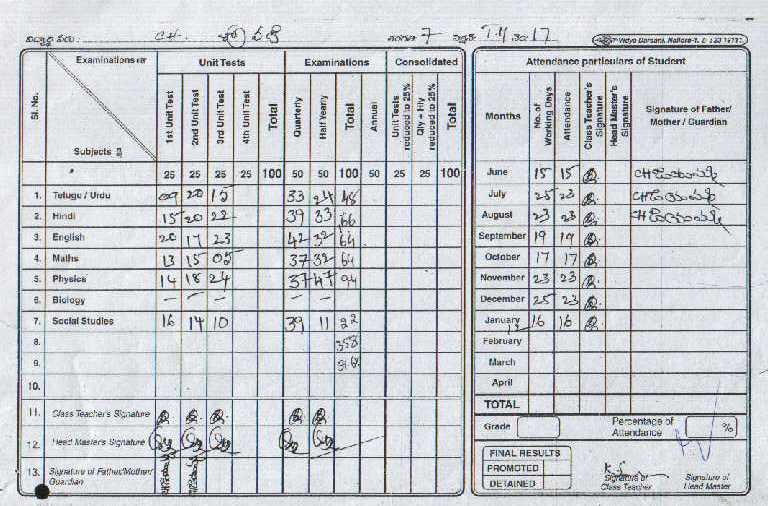 విద్యార్థి పేరు : CH. తరగతి 7 సెక్షన్ T.M నెం 17 Vidya Darsani, Nellore-1.
Examinations Unit Tests Examinations Consolidated
Sl. No. Subjects 1st Unit Test 2nd Unit Test 3rd Unit Test 4th Unit Test Total Quarterly Half Yearly Total Annual Unit Tests reduced to 25% Qly + Hly reduced to 25% Total
25 25 25 25 100 50 50 100 50 25 25 100
1. Telugu / Urdu 09 20 15 33 24 48
2. Hindi 15 20 22 39 33 66
3. English 20 17 23 42 32 64
4. Maths 13 15 05 37 32 64
5. Physics 14 18 24 37 47 94
6. Biology – – – – –
7. Social Studies 16 14 10 39 11 22
8. 358
9.
10.
11. Class Teacher's Signature
12. Head Master's Signature
13. Signature of Father/Mother/ Guardian
Attendance particulars of Student
Months No. of Working Days Attendance Class Teacher's Signature Head Master's Signature Signature of Father/ Mother / Guardian
June 15 15
July 25 23
August 23 23
September 19 19
October 17 17
November 23 23
December 25 23
January 16 16
February
March
April
TOTAL
Grade Percentage of Attendance %
FINAL RESULTS
PROMOTED
DETAINED
Signature of Class Teacher
Signature of Head Master